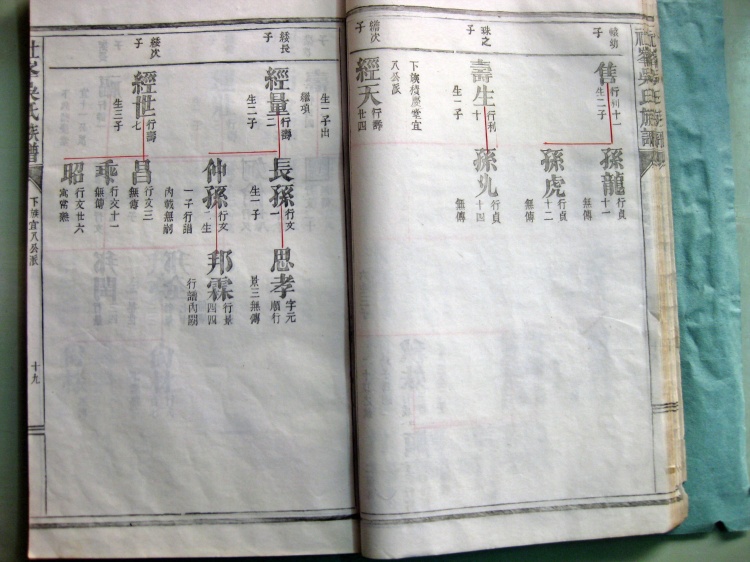 幼
子
售
行利十一
生二子
孫龍
行貞
十一
無傳
孫虎
行貞
十二
無傳
珠之
子
壽生
行利
十
生一子
孫九
行貞
十四
無傳
次
子
經天
行壽
廿四
下族
宜
八公派
生一子出
繼項
綏長
子
經量
行壽
二
生二子
長孫
行文
一
生一子
思孝
字元
順行
景三無傳
仲孫
行文
生
一子行譜
內載無嗣
邦霖
行景
四四
行譜內闕
綏次
子
經世
行壽
七
生三子
昌
行文三
無傳
乖
行文十一
無傳
昭
行文廿六
寓常熟
吳氏族譜
下族宜八公派
十九